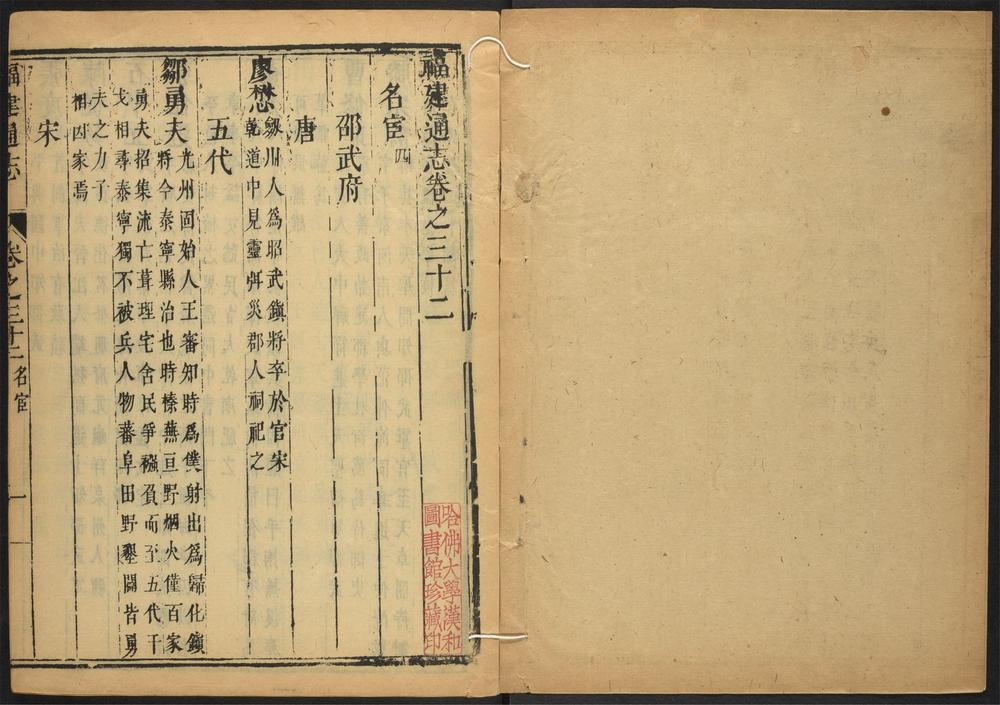 福建通志卷之三十二
名宦四
邵武府
唐
廖懋劔川人爲昭武鎮將卒於官宋
乾道中見靈弭災郡人祠祀之
五代
鄒勇夫光州固始人王審知時爲僕射出爲歸化鎮
將今泰寧縣治也時榛蕪亘野烟火僅百家
勇夫招集流亡葺理宅舍民爭襁負而至五代干
戈相尋泰寧獨不被兵人物蕃阜田野墾闢皆勇
夫之力子
相因家焉
宋
福建通志
卷之三十二名宦
一
哈佛大學漢和
圖書館珍藏印